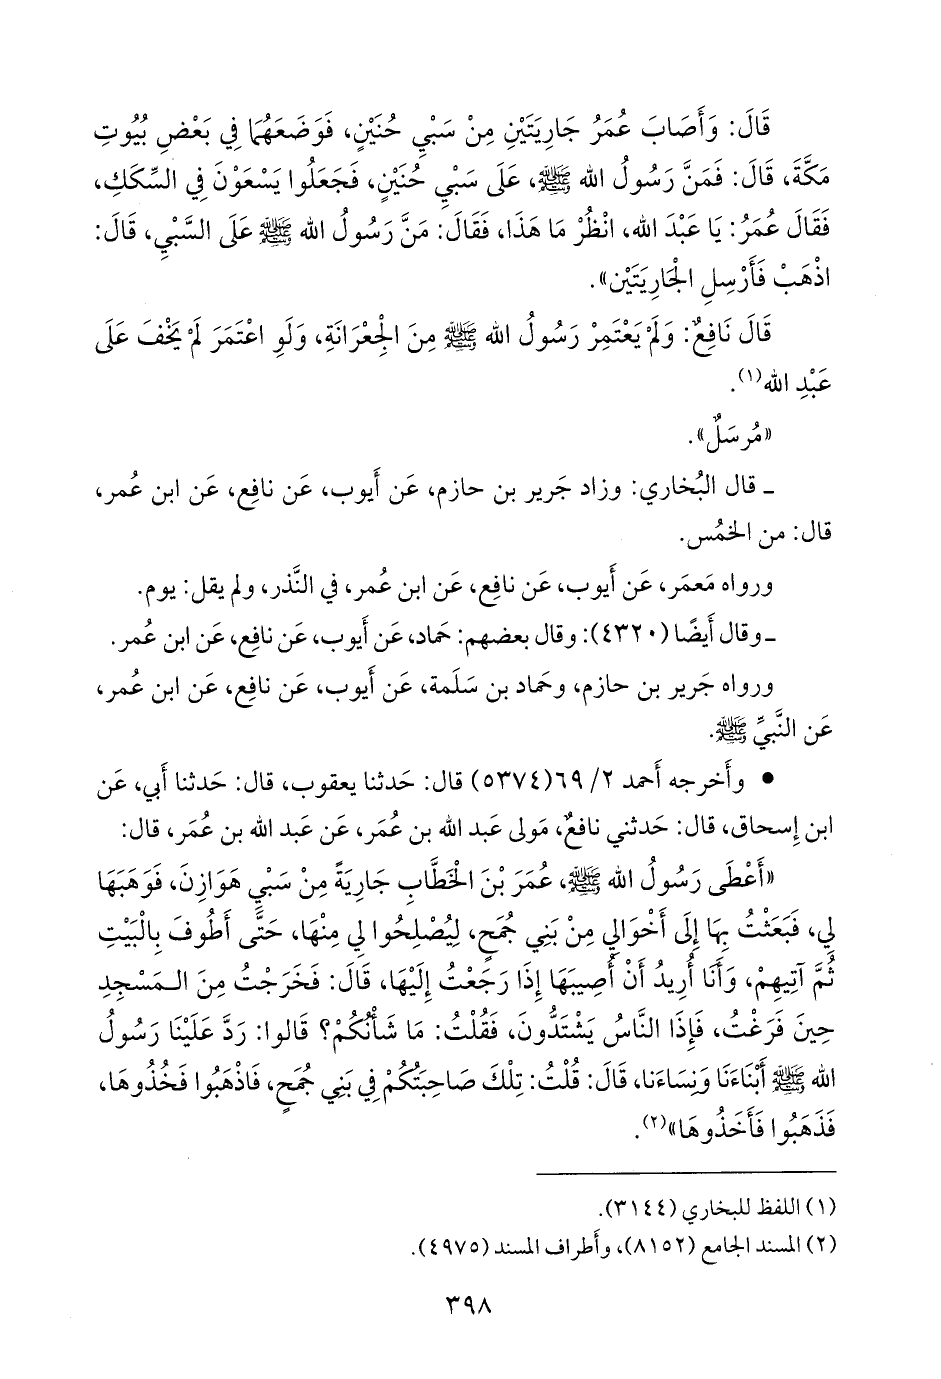 قَالَ: وَأَصَابَ عُمَرُ جَارِيَتَيْنِ مِنْ سَبْيِ حُنَيْنٍ، فَوَضَعَهُمَا فِي بَعْضِ بُيُوتِ
مَكَّةَ، قَالَ: فَمَنَّ رَسُولُ الله ﷺ، عَلَى سَبْيِ حُنَيْنٍ، فَجَعَلُوا يَسْعَوْنَ فِي السِّكَكِ،
فَقَالَ عُمَرُ: يَا عَبْدَ الله، انْظُرْ مَا هَذَا، فَقَالَ: مَنَّ رَسُولُ الله ﷺ عَلَى السَّبْيِ، قَالَ:
اذْهَبْ فَأَرْسِلِ الْجَارِيَتَيْنِ».
قَالَ نَافِعٌ: وَلَمْ يَعْتَمِرْ رَسُولُ الله ﷺ مِنَ الْجِعْرَانَةِ، وَلَوِ اعْتَمَرَ لَمْ يَخْفَ عَلَى
عَبْدِ الله(١).
«مُرسَلٌ».
ـ قال البُخاري: وزاد جَرير بن حازم، عَن أَيوب، عَن نافِع، عَن ابن عُمر،
قال: من الخمُس.
ورواه مَعمَر، عَن أَيوب، عَن نافِع، عَن ابن عُمر، في النَّذر، ولم يقل: يوم.
ـ وقال أَيضًا (٤٣٢٠): وقال بعضهم: حَماد، عَن أَيوب، عَن نافِع، عَن ابن عُمر.
ورواه جَرير بن حازم، وحَماد بن سَلَمة، عَن أَيوب، عَن نافِع، عَن ابن عُمر،
عَن النَّبيِّ ﷺ.
• وأَخرجه أَحمد ٢/ ٦٩ (٥٣٧٤) قال: حَدثنا يعقوب، قال: حَدثنا أَبي، عَن
ابن إِسحاق، قال: حَدثني نافعٌ، مَولى عَبد الله بن عُمَر، عَن عَبد الله بن عُمَر، قال:
«أَعْطَى رَسُولُ الله ﷺ، عُمَرَ بْنَ الْخَطَّابِ جَارِيَةً مِنْ سَبْيِ هَوَازِنَ، فَوَهَبَهَا
لِي، فَبَعَثْتُ بِهَا إِلَى أَخْوَالِي مِنْ بَنِي جُمَحٍ، لِيُصْلِحُوا لِي مِنْهَا، حَتَّى أَطُوفَ بِالْبَيْتِ
ثُمَّ آتِيهِمْ، وَأَنَا أُرِيدُ أَنْ أُصِيبَهَا إِذَا رَجَعْتُ إِلَيْهَا، قَالَ: فَخَرَجْتُ مِنَ الـمَسْجِدِ
حِينَ فَرَغْتُ، فَإِذَا النَّاسُ يَشْتَدُّونَ، فَقُلْتُ: مَا شَأْنُكُمْ؟ قَالُوا: رَدَّ عَلَيْنَا رَسُولُ
الله ﷺ أَبْنَاءَنَا وَنِسَاءَنا، قَالَ: قُلْتُ: تِلْكَ صَاحِبَتُكُمْ فِي بَنِي جُمَحٍ، فَاذْهَبُوا فَخُذُوهَا،
فَذَهَبُوا فَأَخَذُوهَا»(٢).
(١) اللفظ للبخاري (٣١٤٤).
(٢) المسند الجامع (٨١٥٢)، وأَطراف المسند (٤٩٧٥).
٣٩٨